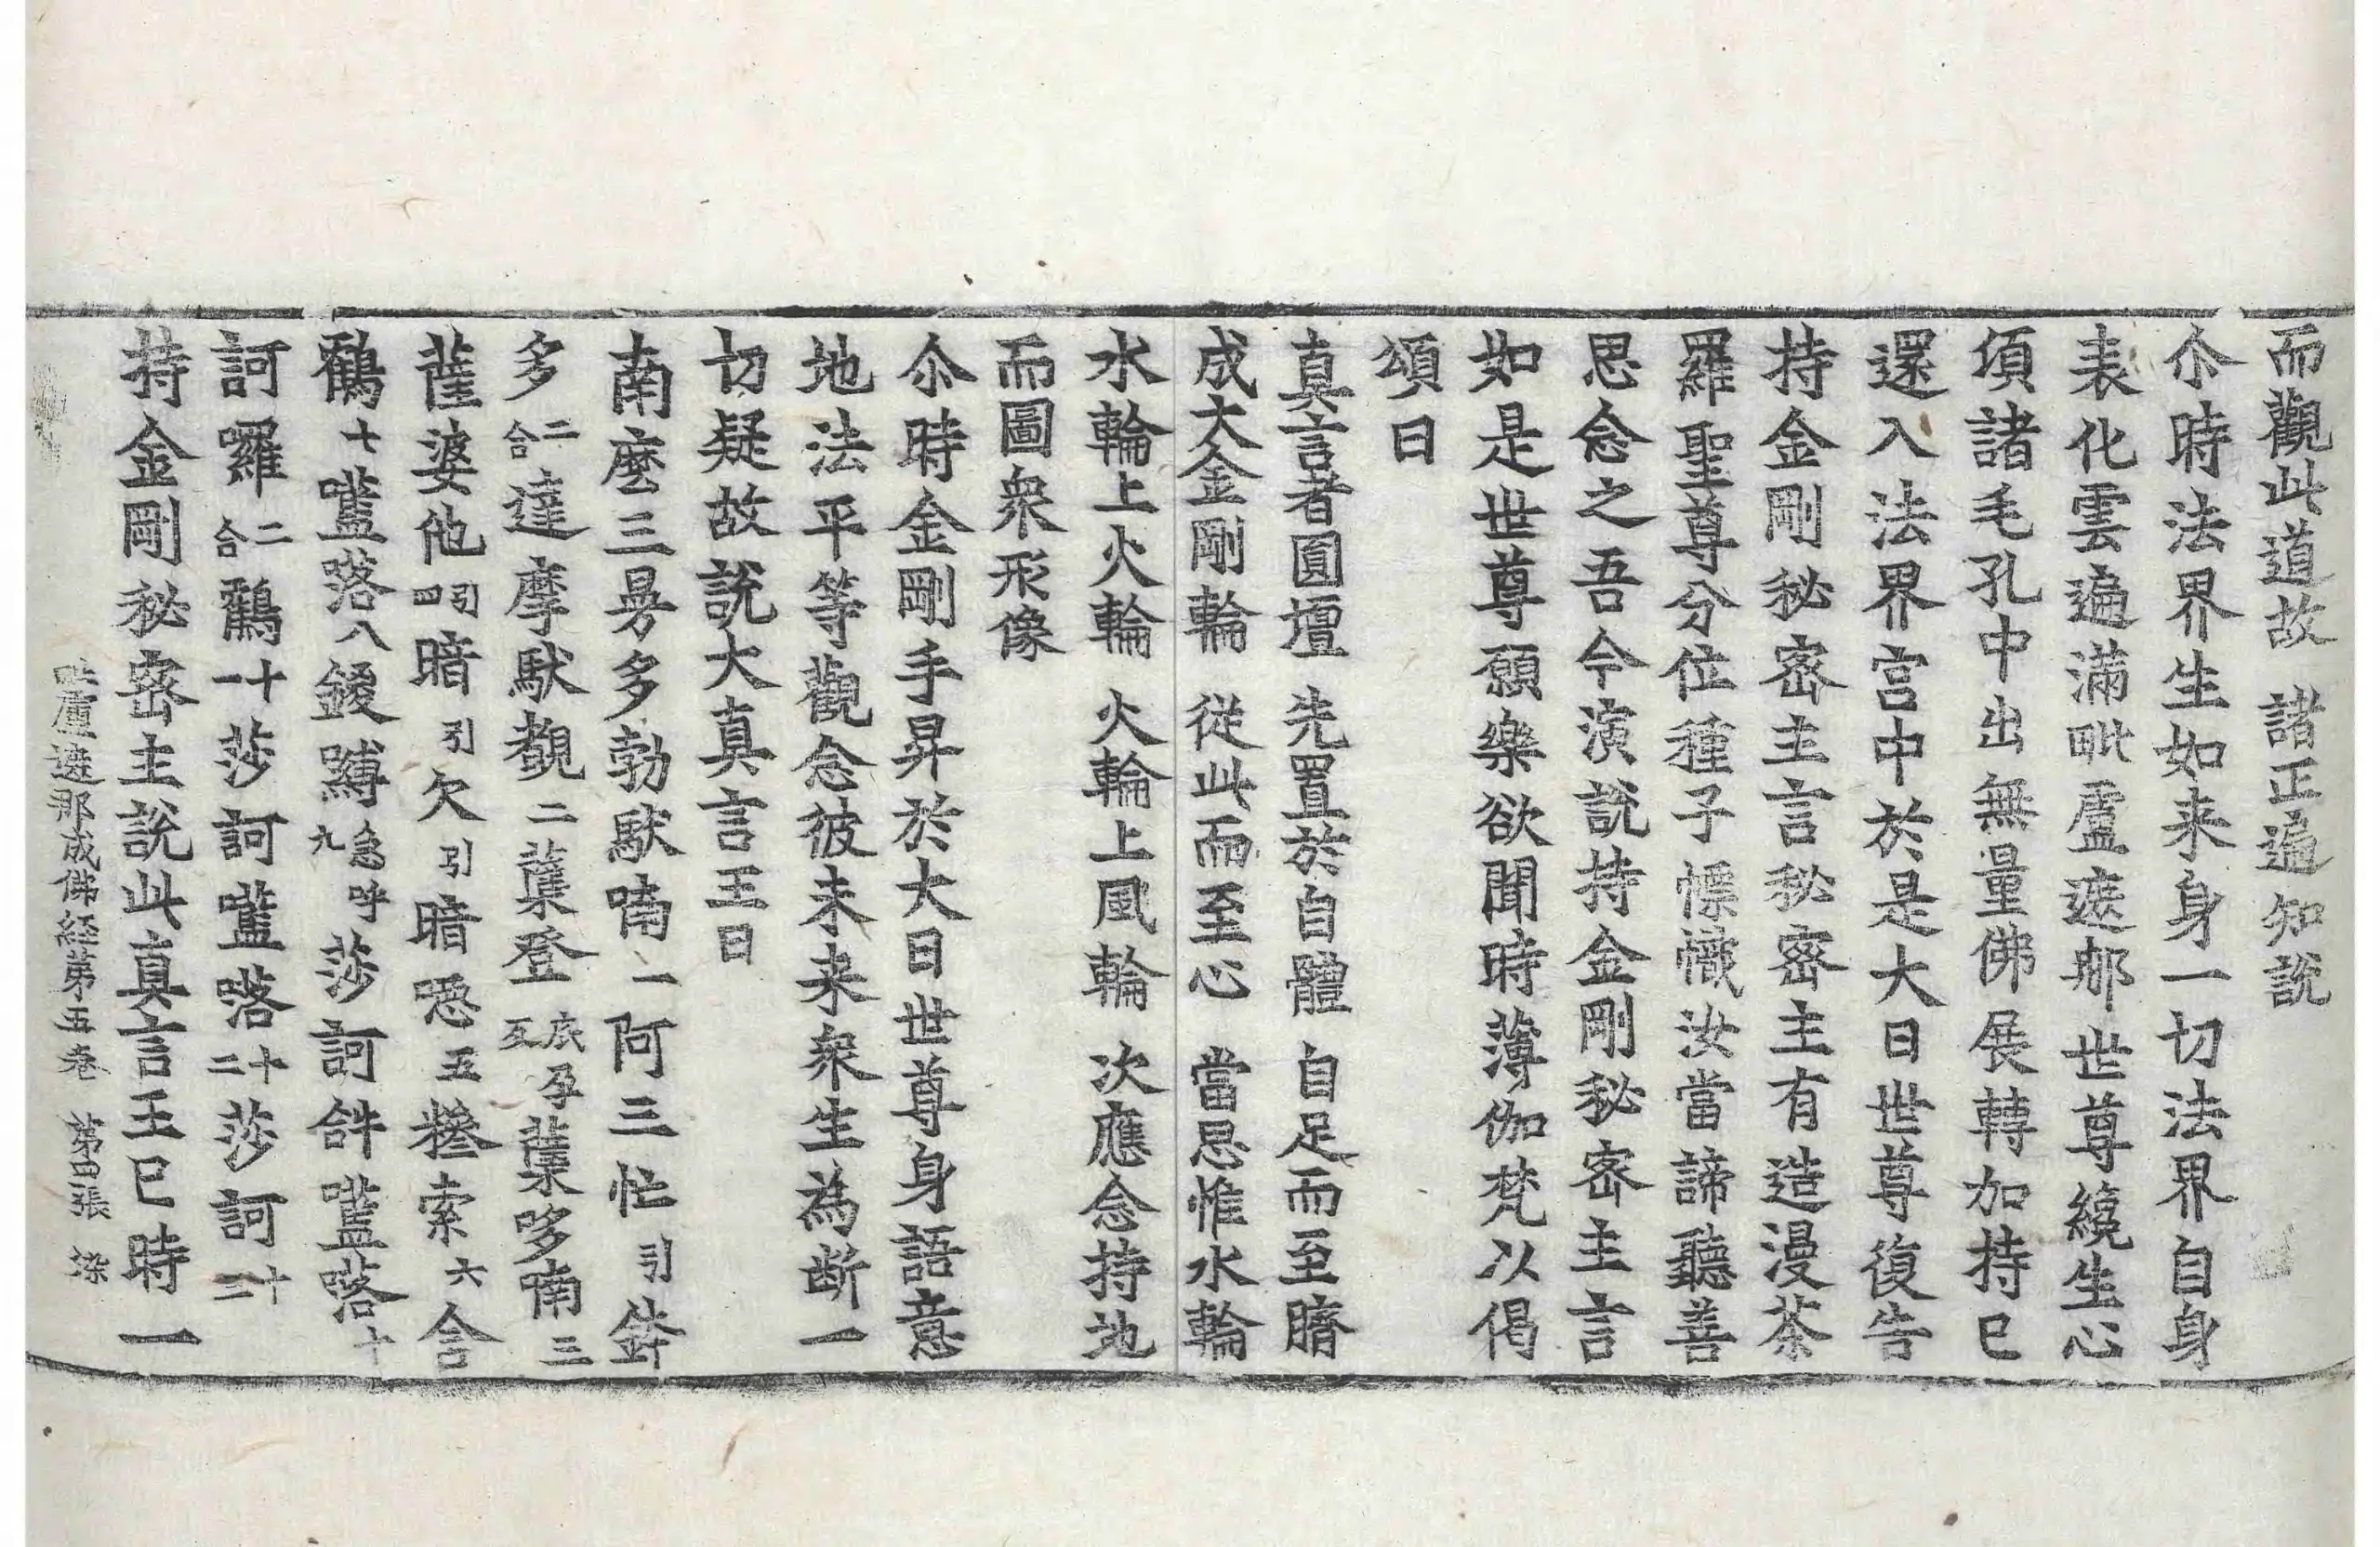 而觀此道故　諸正遍知說
尒時法界生如来身一切法界自身
表化雲遍滿毗盧遮那世尊纔生心
頃諸毛孔中出無量佛展轉加持已
還入法界宮中於是大日世尊復告
持金剛秘密主言秘密主有造漫茶
羅聖尊分位種子幖幟汝當諦聽善
思念之吾今演說持金剛秘密主言
如是世尊願樂欲聞時薄伽梵以偈
頌曰
真言者圓壇　先置於自體　自足而至臍
成大金剛輪　從此而至心　當思惟水輪
水輪上火輪　火輪上風輪　次應念持地
而圖衆形像
尒時金剛手昇於大日世尊身語意
地法平等觀念彼未来衆生為斷一
切疑故說大真言王曰
南麼三曼多勃馱喃一阿三忙引鉾
多二合達摩馱覩二蘖登底孕反蘖哆喃三
薩婆他引四暗引欠引暗惡五糝索六含
鶴七㘕㗉八鍐嚩急呼九莎訶𤙖㘕㗉十
訶囉二合鶴十一莎訶㘕㗉十二莎訶十三
持金剛秘密主說此真言王已時一
毗盧遮那成佛経第五卷　第四張　染